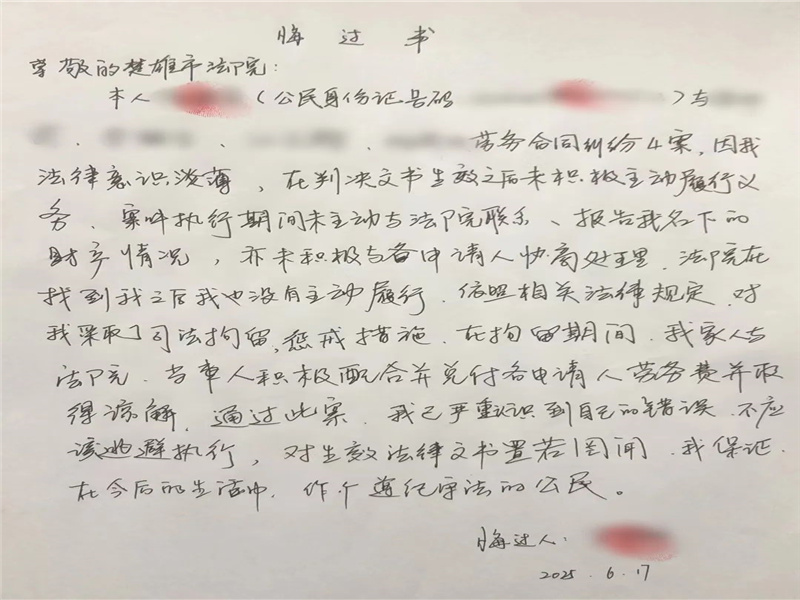 悔过书
尊敬的楚雄市法院：
本人（公民身份证号码）与
、、、劳务合同纠纷4案，因我
法律意识淡薄，在判决文书生效之后未积极主动履行义
务、案件执行期间未主动与法院联系、报告我名下的
财产情况，亦未积极与各申请人协商处理，法院在
找到我之后我也没有主动履行，依照相关法律规定，对
我采取了司法拘留，惩戒措施，在拘留期间，我家人与
法院、当事人积极配合并兑付各申请人劳务费并取
得谅解，通过此案，我已严重识到自己的错误，不应
该逃避执行，对生效法律文书置若罔闻，我保证，
在今后的生活中，作个遵纪守法的公民。
悔过人：
2025.6.17